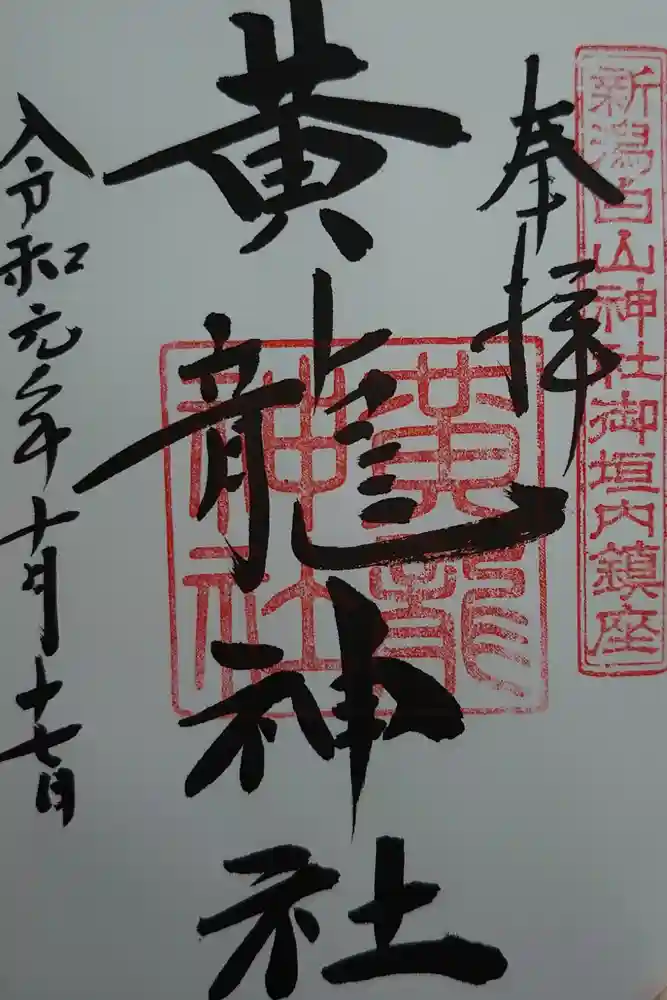 新潟白山神社御垣内鎮座
奉拝
黄龍神社
黄龍神社
令和元年十月十七日